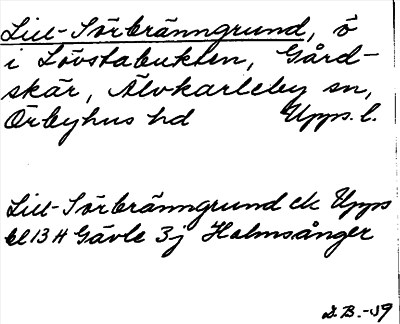 Lill-Sörbränngrund, ö
i Lövstabukten, Gård-
skär, Älvkarleby sn,
Örbyhus hd Upps. l.
Lill-Sörbränngrund ek Upps
bl 13 H Gävle 3j Holmsånger
G.B.-59